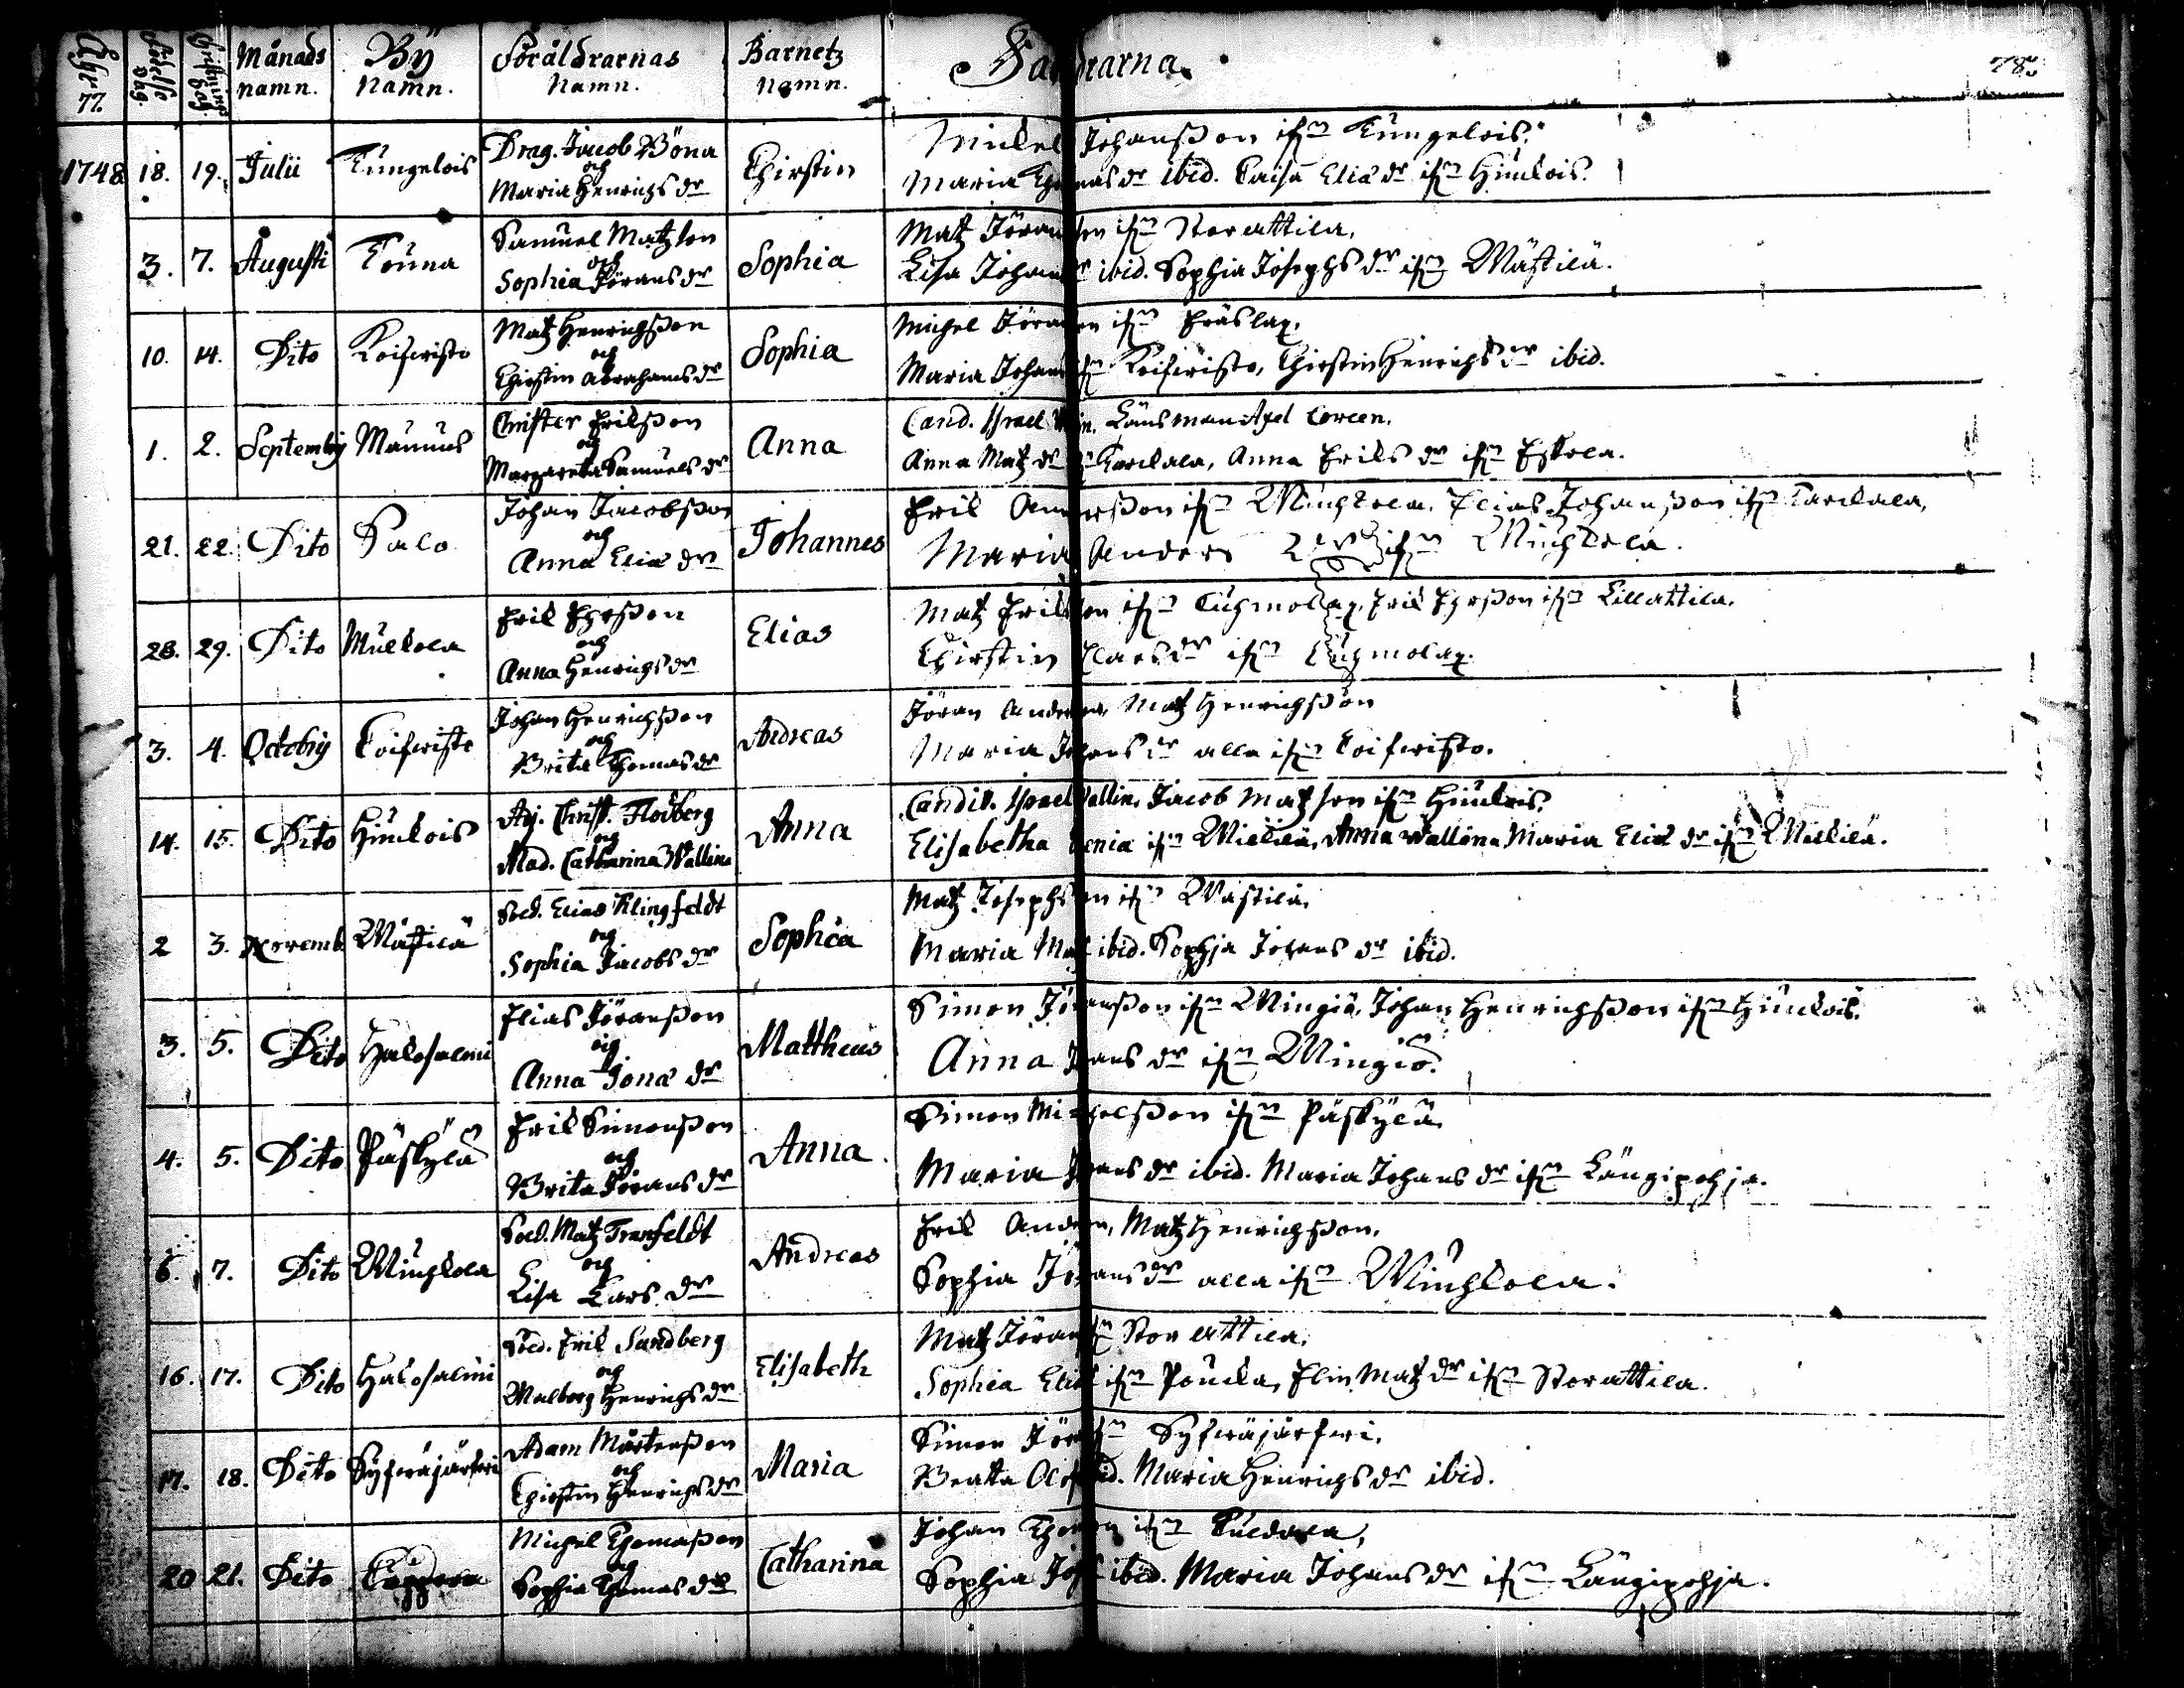 Åhr 77. Födelse Dag Christnings Dag. Månads namn. By Namn. Föräldrarnas Namn. Barnetz Namn. Faddrarna. 78.
1748 18. 19. Julii Kungelois Drag. Jacob Böna och Maria Henrichs dr Chirstin
Mickel Johansson ifrn Kungelois.
Maria Thomas dr ibid. Caisa Eliæ dr ifrn Huckois.
3. 7. Augusti Touna Samuel Matzson och Sophia Jörans dr Sophia
Matz Jöransson ifrn Storattila,
Lisa Johans dr ibid. Sophia Josephs dr ifrn Wästilä.
10. 14. Dito Koifwisto Matz Henrichsson och Chirstin Abrahams dr Sophia
Michel Jöransson ifrn
Maria Johans ifrn Koifwisto, Chirstin Henrichs dr ibid.
1. 2. Septembr Mannus Christer Erilsson och Margareta Samuels dr Anna
Cand. Israel Länsman Axel Coreen.
Anna Matz dr Karckala, Anna Eriks dr ifrn Eskola.
21. 22. Dito Salo Johan Jacobsson och Anna Eliæ dr Johannes
Erik Andersson ifrn Wuchkola. Elias Johansson ifrn Karckala,
Maria Anders dr ifrn Wuchkola.
28. 29. Dito Muckola Erik Ehrsson och Anna Henrichs dr Elias
Matz Eriksson ifrn Cuhmolax, Erik Ehrsson ifrn Lillattila.
Chirstin Clas dr ifrn Cuhmolax.
3. 4. Octobr Koifwisto Johan Henrichsson och Brita Thomas dr Andreas
Jöran Andersson, Matz Henrichsson
Maria Johans dr alla ifrn Koifwisto.
14. 15. Dito Huckois Adj. Christ. Flodberg och Mad. Catharina Wallina Anna
Candid. Israel Wallin, Jacob Matzson ifrn Huckois.
Elisabetha ifrn Mickilä, Anna Wallina Maria Eliæ dr ifrn Mickilä.
2 3. Novemb. Wästilä Sold. Elias Klingfeldt och Sophia Jacobs dr Sophia
Matz Josephsson ifrn Wästilä,
Maria Matz ibid. Sophia Johans dr ibid.
3. 5. Dito Halosalmi Elias Jöransson och Anna Jonæ dr Mattheus
Simon Jöransson ifrn Mingiö, Johan Henrichsson ifrn Huckois.
Anna Jörans dr ifrn Mingiö.
4. 5. Dito Päskylä Erik Simonsson och Brita Jörans dr Anna.
Simon Michelsson ifrn Päskylä,
Maria Johans dr ibid. Maria Johans dr ifrn Längipohja.
6. 7. Dito Wuchkola Sold. Matz Tranfeldt och Lisa Lars dr Andreas
Erik Andersson, Matz Henrichsson,
Sophia Johans dr alla ifrn Wuchkola.
16. 17. Dito Halosalmi Sold. Erik Sandberg och Walborg Henrichs dr Elisabeth
Matz Jöransson ifrn Storattila,
Sophia Eliæ ifrn Poucka, Elin Matz dr ifrn Storattila.
17. 18. Dito Syfwäjärfwi Adam Mårtensson och Chirstin Henrichs dr Maria
Simon Jöransson ifrn Syfwäjärfwi,
Beatta Olofs ibid. Maria Henrichs dr ibid.
20 21. Dito Michel Thomasson och Sophia Thomas dr Catharina
Johan Thomasson ifrn
Sophia Joh ibid. Maria Johans dr ifrn Längipohja.